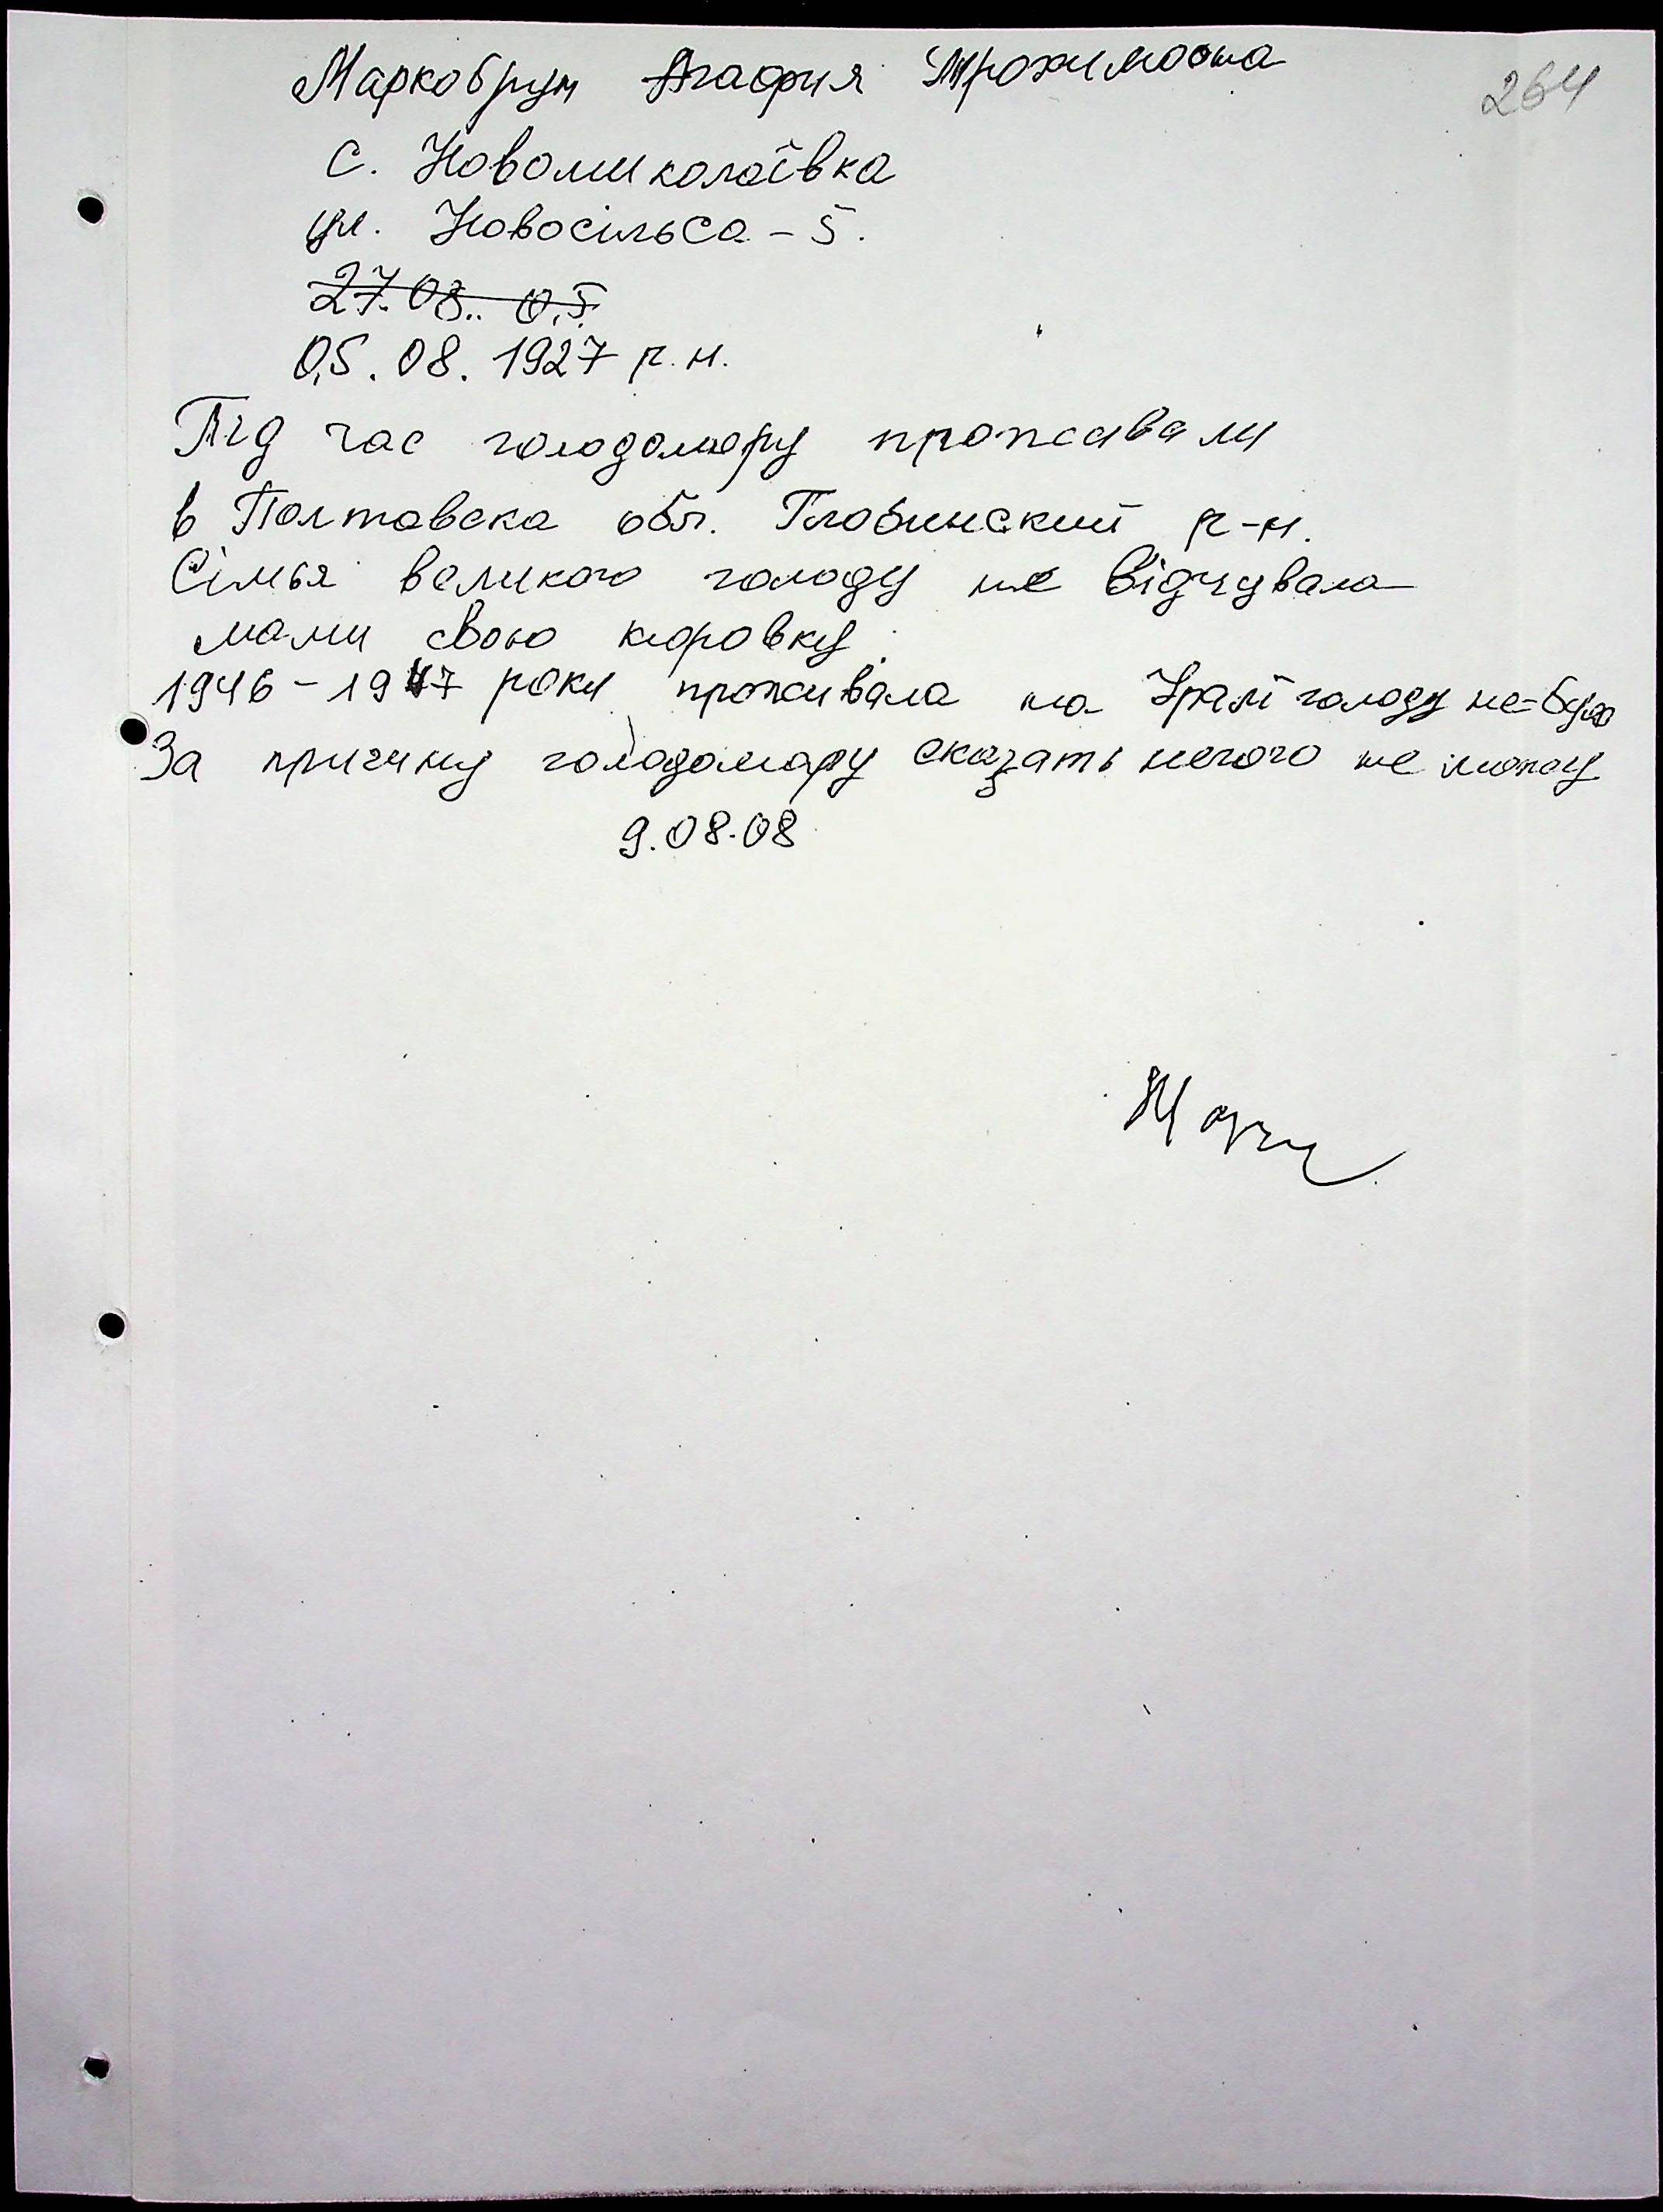 Маркобрун Агафия Трохимовна
264
с. Новомиколаївка
ул. Новосільса - 5.
27.08.. 0.5.
05. 08. 1927 р.н.
Під час голодомору проживали
в Полтавска обл. Глобинский р-н.
Сімья великого голоду не відчувала
мали свою коровку.
1946 - 1947 роки проживала на Уралі голоду не-було
За причину голодомору сказать нечого не можу
9.08.08